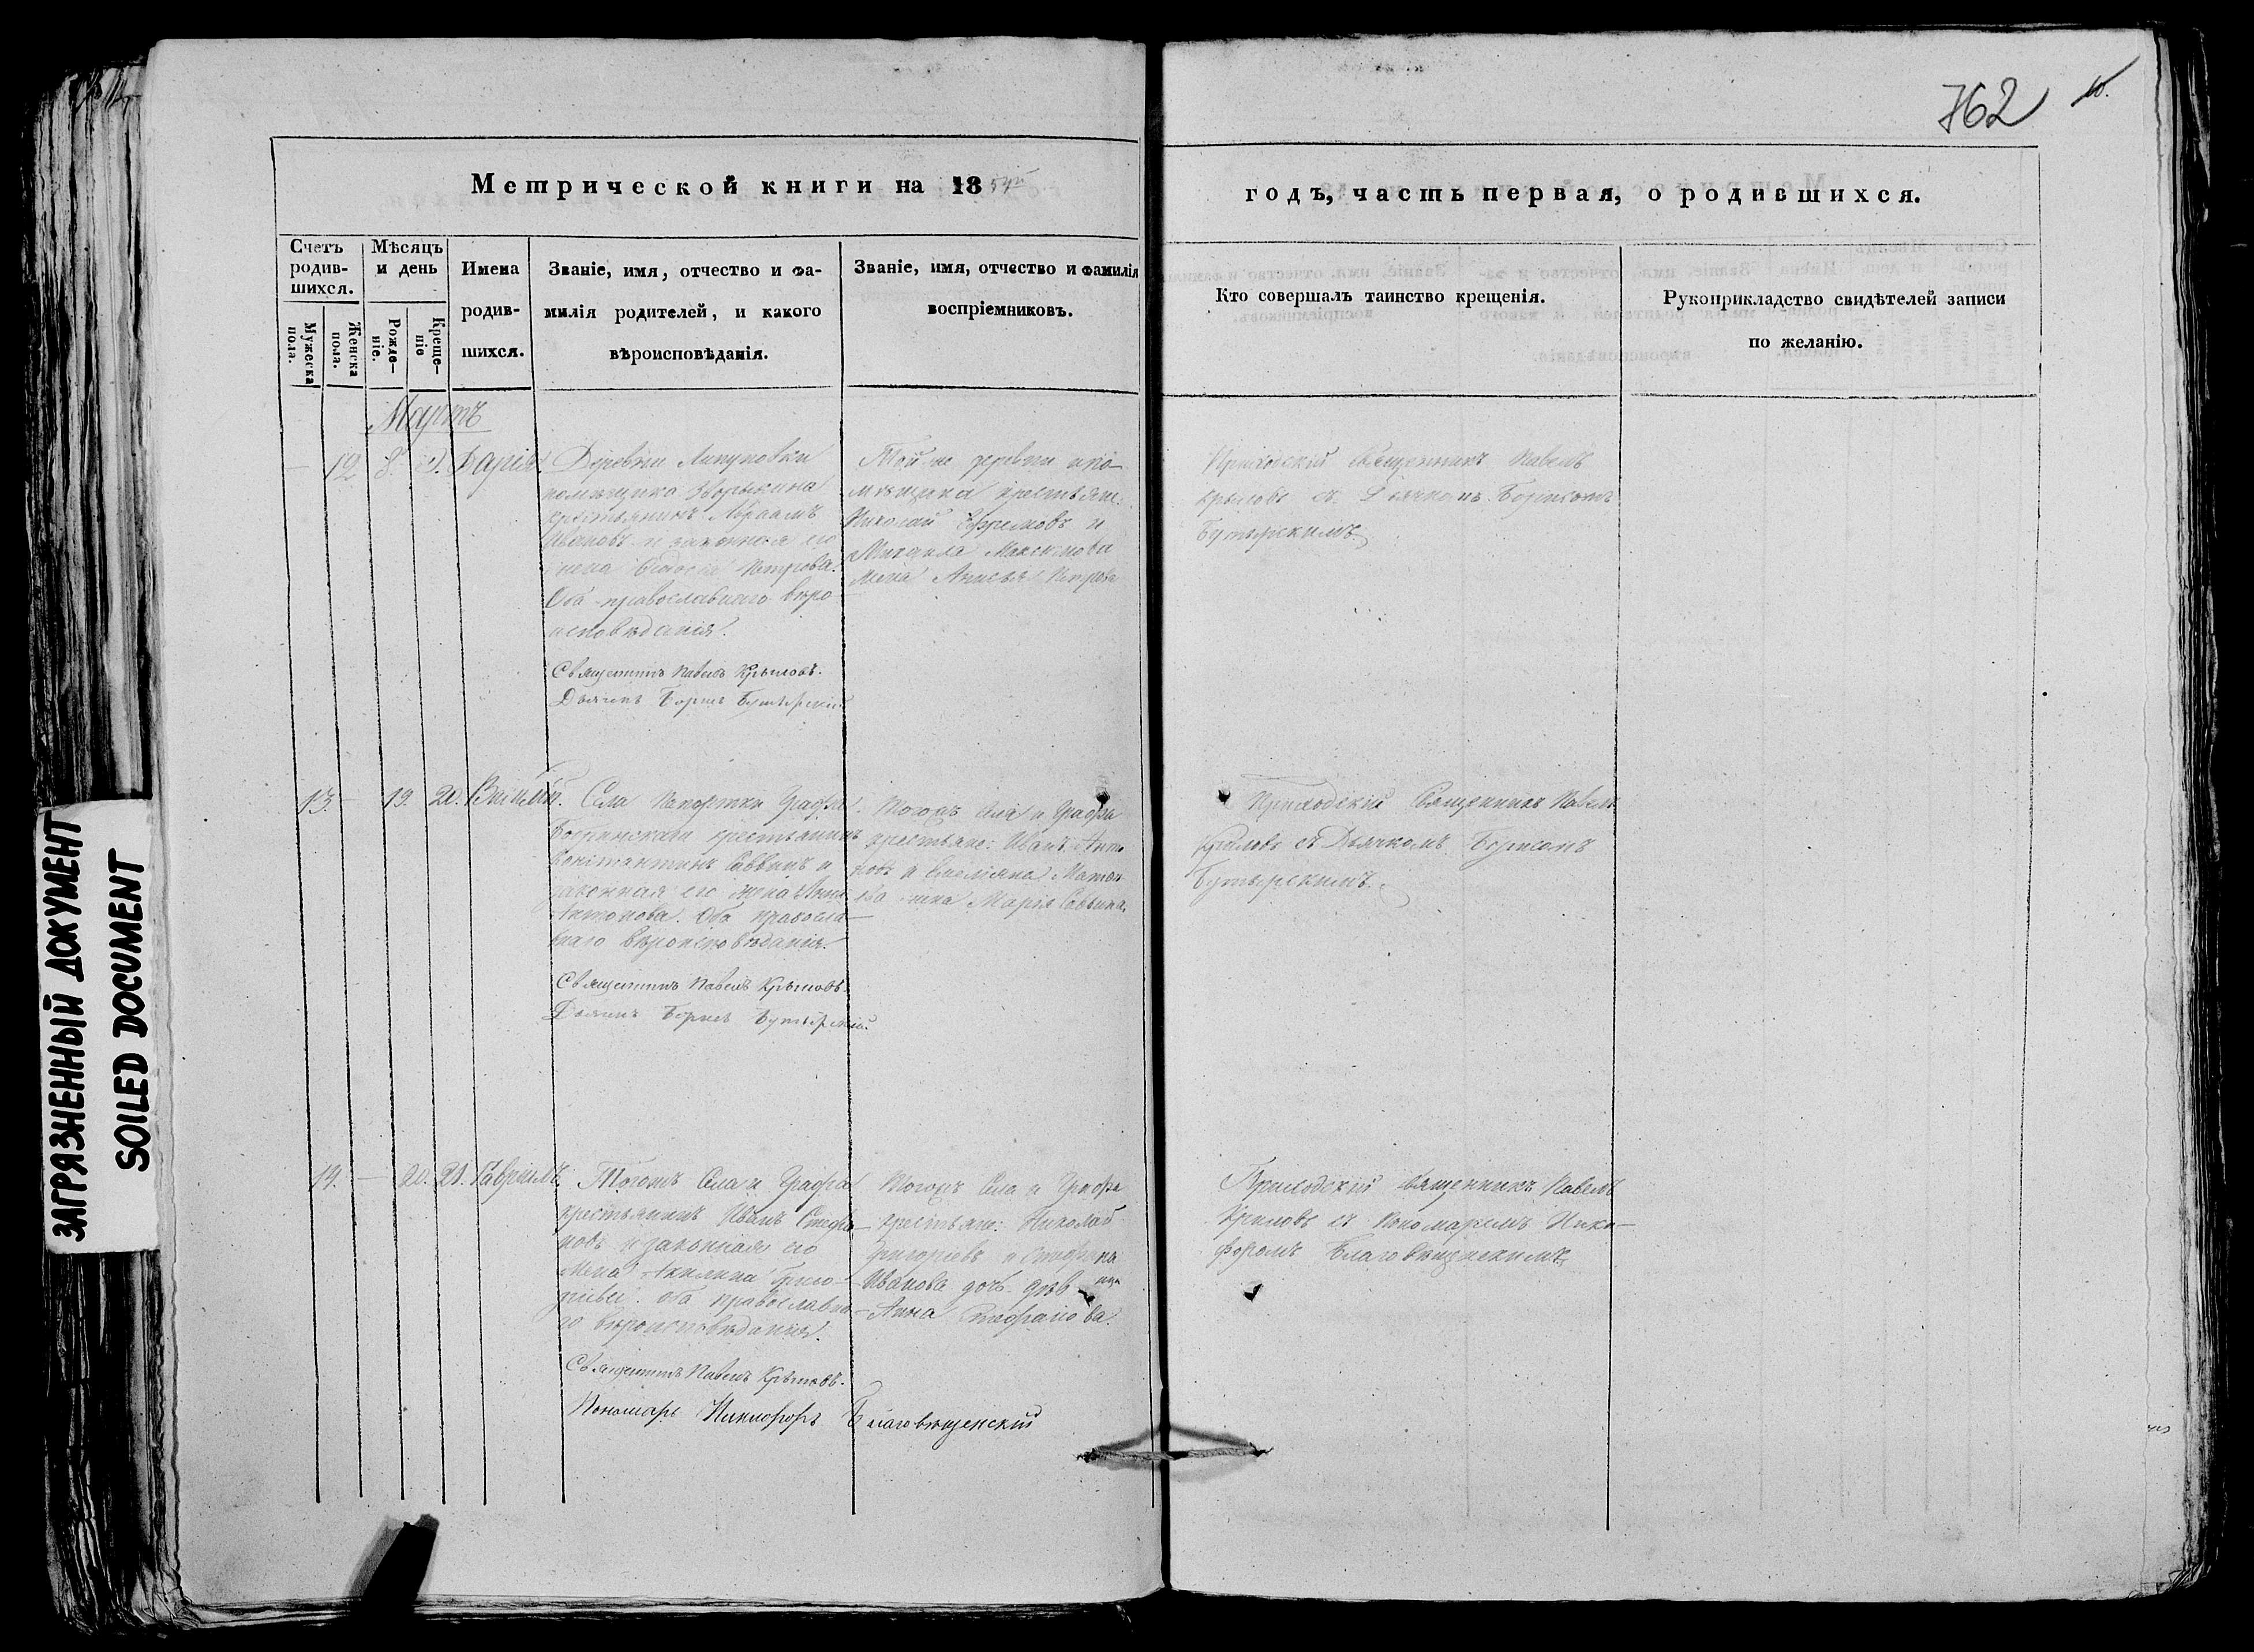 762
10.
ЗАГРЯЗНЕННЫЙ ДОКУМЕНТ
SOILED DOCUMENT
Метрической книги на 1854
годъ, часть первая, о родившихся.
Счетъ родив-шихся.
Мужеска пола.
Женска пола.
Мѣсяцъ и день
Рожде-ніе.
Креще-ніе
Имена
родив-
шихся.
Званіе, имя, отчество и фа-
милія родителей, и какого
вѣроисповѣданія.
Званіе, имя, отчество и фамилія
воспріемниковъ.
Кто совершалъ таинство крещенія.
Рукоприкладство свидѣтелей записи
по желанію.
Мартъ
12 8 Дарія
Деревни
помѣщика
крестьянинъ Авраамъ
Ивановъ и законная его
жена Петрова.
Оба православнаго вѣро
исповѣданія.
Священникъ Павелъ Крыловъ.
Дьячекъ Борисъ Бутырскій
Той же деревни и по
мѣщика крестьяне:
Николай Ефремовъ и
Михаила Максимова
жена Анисья Петрова
Приходскій Священникъ Павелъ
Крыловъ съ Дьячкомъ Борисомъ
Бутырскимъ
13. 19. 20.
Села Графа
Бобринскаго крестьянинъ
Константинъ Саввинъ и
законная его жена Анна
Антонова. Оба православ
наго вѣроисповѣданія.
Священникъ Павелъ Крыловъ.
Дьячекъ Борисъ Бутырскій.
Тогожъ села и Графа
крестьяне: Иванъ Анто
новъ и Емеліана Матвѣ
ва жена Марія Саввина.
Приходскій Священникъ Павелъ
Крыловъ съ Дьячкомъ Борисомъ
Бутырскимъ.
14. 20. 21. Гавріилъ
Тогожъ Села и Графа
крестьянинъ Иванъ Стефа
новъ и законная его
жена Акилина Григо
рьева. Оба православна
го вѣроисповѣданія.
Священникъ Павелъ Крыловъ.
Пономарь Никифоръ Благовѣщенскій
Тогожъ Села и Графа
крестьяне: Николай
Григорьевъ и Стефана
Иванова дочь дѣвица
Анна Стефанова.
Приходскій Священникъ Павелъ
Крыловъ съ Пономаремъ Ники
форомъ Благовѣщенскимъ